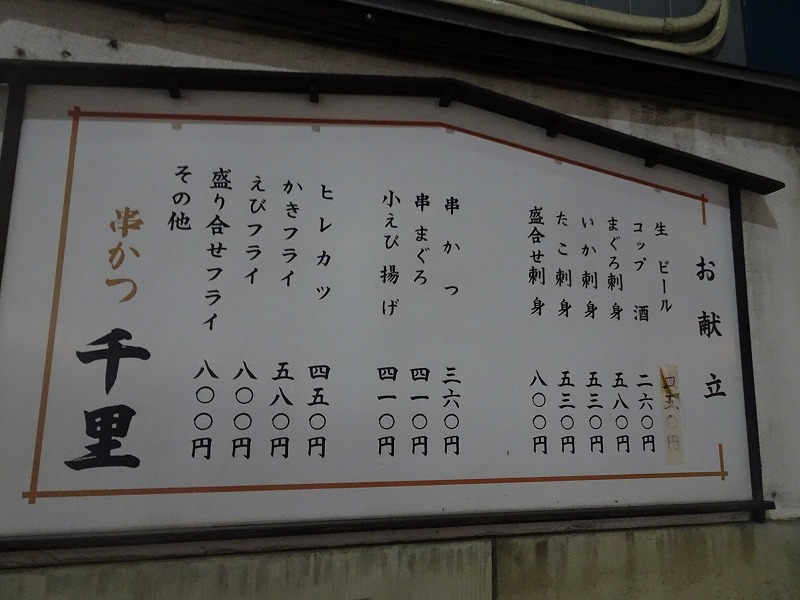 お献立
生ビール
コップ酒 二六〇円
まぐろ刺身 五八〇円
いか刺身 五三〇円
たこ刺身 五三〇円
盛合せ刺身 八〇〇円
串かつ 三六〇円
串まぐろ 四一〇円
小えび揚げ 四一〇円
ヒレカツ 四五〇円
かきフライ 五八〇円
えびフライ 八〇〇円
盛り合せフライ 八〇〇円
その他
串かつ
千里